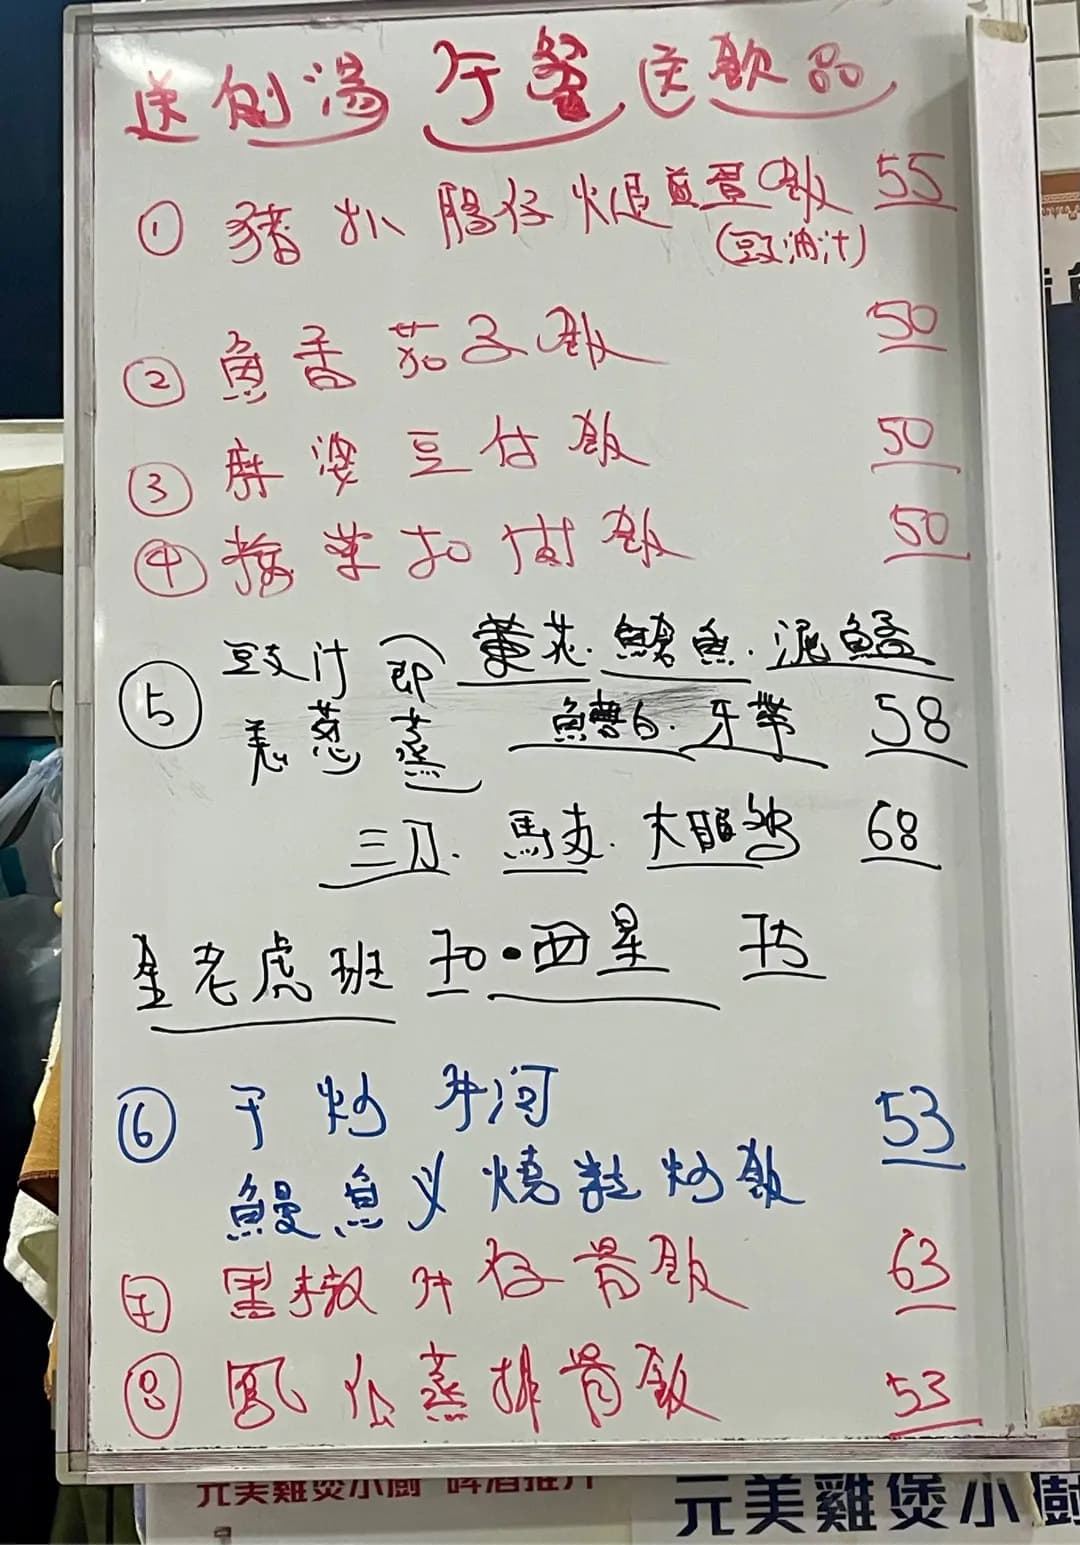 送例湯 午餐 送飲品
① 豬扒腸仔焗薯蛋飯 55
(豉油汁)
② 魚香茄子飯 50
③ 麻婆豆付飯 50
④ 梅菜扣肉飯 50
⑤ 豉汁 (即 黃花.鯧魚.泥鯭
羌葱 蒸 牙帶 58
三刀.馬友.大眼 68
金老虎班 70・西星 75
⑥ 干炒牛河 53
鰻魚义燒粒炒飯
⑦ 黑椒牛仔骨飯 63
⑧ 鳳爪蒸排骨飯 53
元美雞煲小廚 啤酒推介
元美雞煲小廚